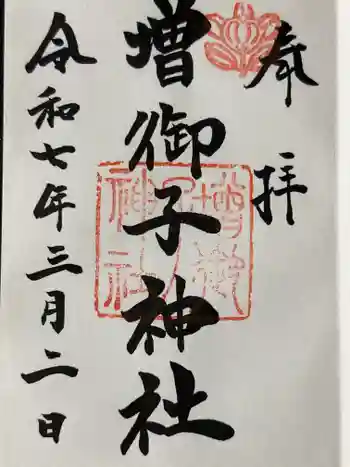 奉拝
増御子神社
増御子神社
令和七年三月二日